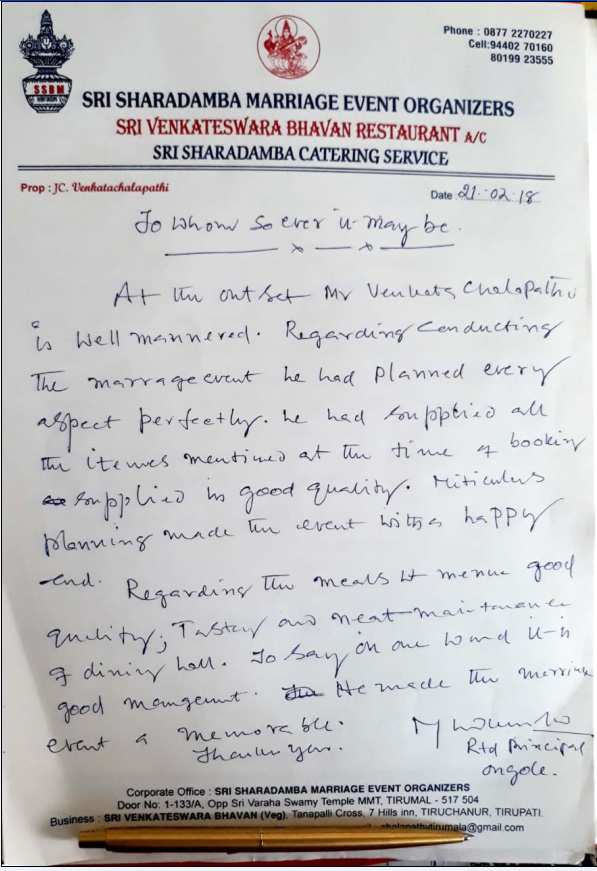 Phone : 0877 2270227
Cell:94402 70160
80199 23555
SSBM
SRI SHARADAMBA MARRIAGE EVENT ORGANIZERS
SRI VENKATESWARA BHAVAN RESTAURANT A/C
SRI SHARADAMBA CATERING SERVICE
Prop : JC. Venkatachalapathi
Date 21.02.18
To whom so ever it may be.
At the outset Mr Venkata Chalapathi
is well mannered. Regarding Conducting
The marrage event he had Planned every
aspect perfectly. he had supplied all
the itemes mentined at the time of booking
supplied in good quality. Miticulus
planning made the event with a happy
end. Regarding the meals menu good
quality, Tasty and neat maintanance
of dining hall. To Say in one word it is
good mangement. He made the marriage
event a memorable.
Thank you.
Rtd Principal
ongole.
Corporate Office : SRI SHARADAMBA MARRIAGE EVENT ORGANIZERS
Door No: 1-133/A, Opp Sri Varaha Swamy Temple MMT, TIRUMAL - 517 504
Business : SRI VENKATESWARA BHAVAN (Veg), Tanapalli Cross, 7 Hills inn, TIRUCHANUR, TIRUPATI.
chalapathytirumala@gmail.com